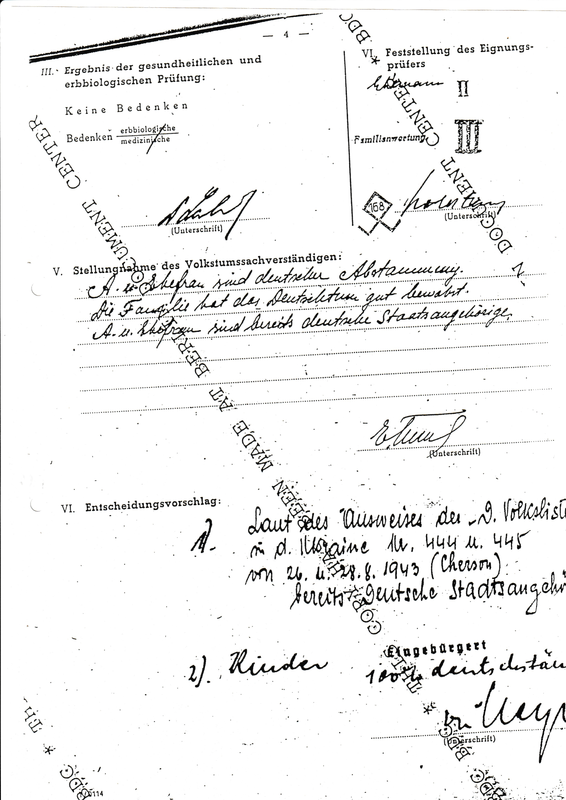 — 4 —
III. Ergebnis der gesundheitlichen und
erbbiologischen Prüfung:
Keine Bedenken
Bedenken erbbiologische
medizinische
(Unterschrift)
VI. Feststellung des Eignungs-
prüfers
Ehemann II
Familienwertung III
168
(Unterschrift)
V. Stellungnahme des Volkstumssachverständigen:
A. u. Ehefrau sind deutscher Abstammung.
Die Familie hat das Deutschtum gut bewahrt.
A. u. Ehefrau sind bereits deutsche Staatsangehörige.
(Unterschrift)
VI. Entscheidungsvorschlag:
1). Laut des Ausweises der D. Volksliste
in d. Ukraine Nr. 444 u. 445
von 26. u. 28.8.1943 (Cherson)
bereits Deutsche Staatsangehö
Eingebürgert
2). Kinder 100% deutschstä
(Unterschrift)
DOCUMENT CENTER
MADE AT BERL
BDC